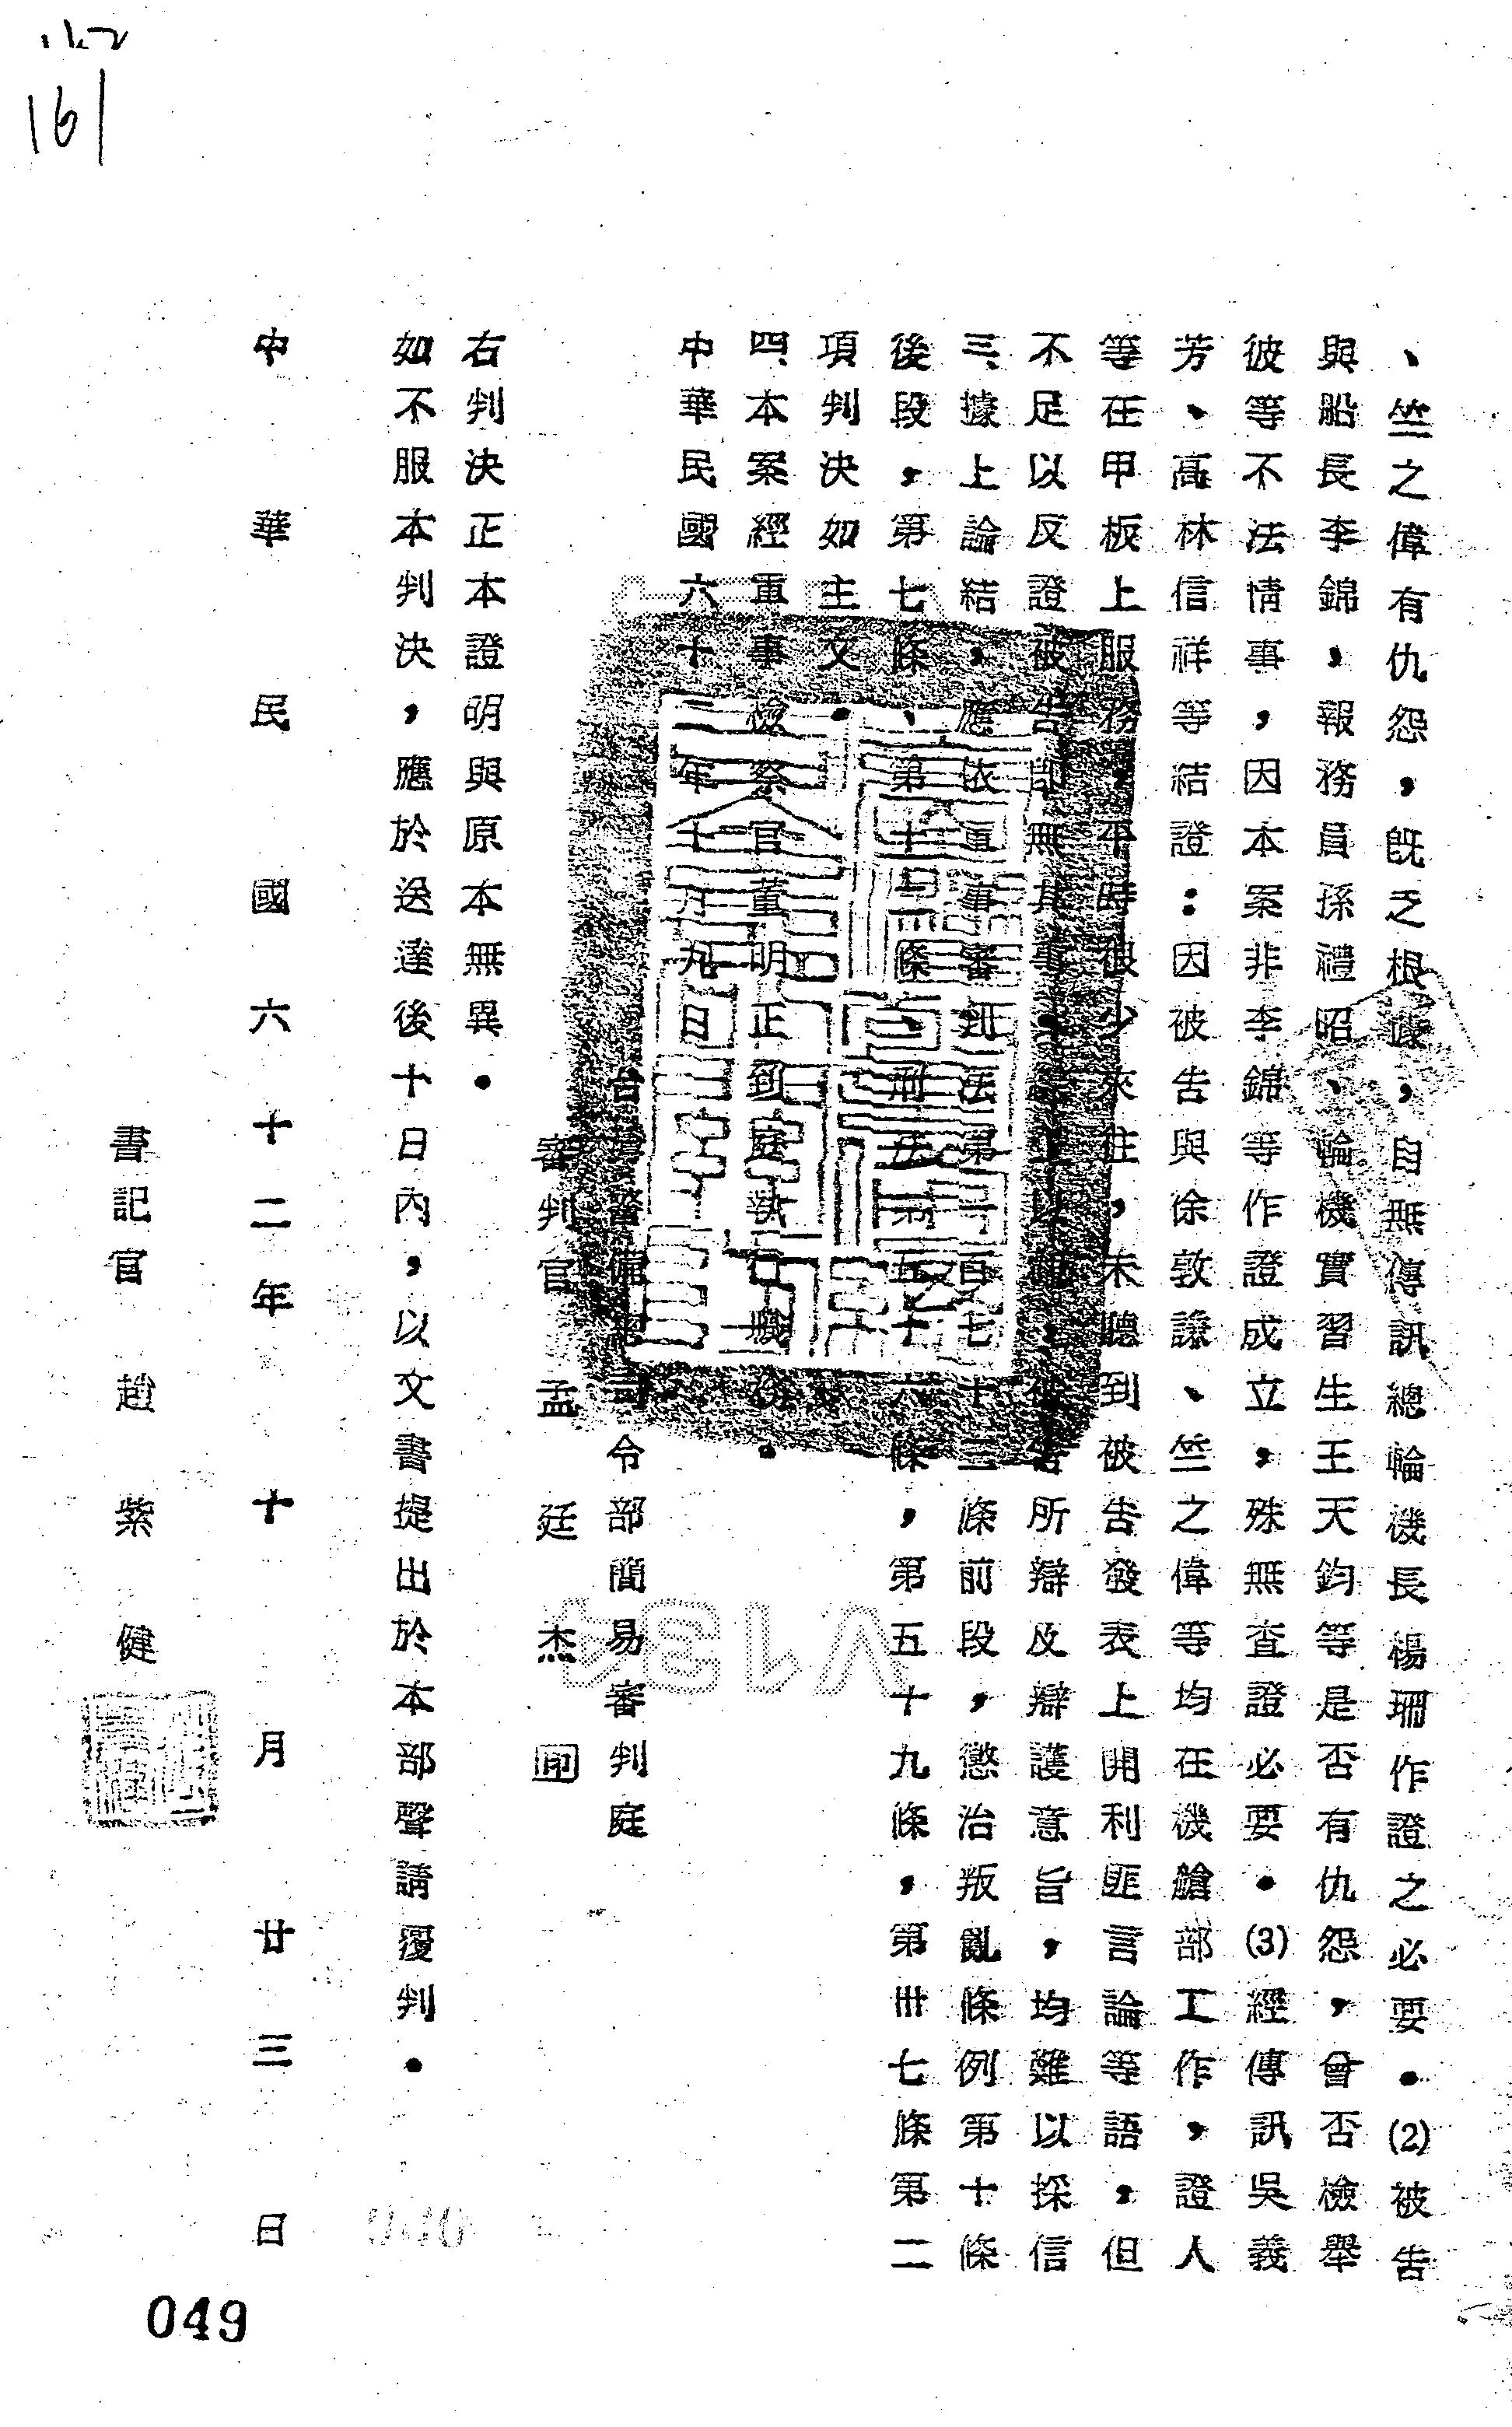 161
、竺之偉有仇怨，既乏根據，自無傳訊總輪機長楊珊作證之必要。(2)被告
與船長李錦，報務員孫禮昭、輪機實習生王天鈞等是否有仇怨，曾否檢舉
彼等不法情事，因本案非李錦等作證成立，殊無查證必要。(3)經傳訊吳義
芳、高林信祥等結證：因被告與徐敦謙、竺之偉等均在機艙部工作，證人
等在甲板上服務，平時很少來往，未聽到被告發表上開利匪言論等語，但
不足以反證被告即無其事。以，被告所辯及辯護意旨，均難以採信
三、據上論結，應依軍事審判法第一百七十三條前段，懲治叛亂條例第十條
後段，第七條、第十二條、刑法第五十六條，第五十九條，第卅七條第二
項判決如主文。
四、本案經軍事檢察官董明正到庭執行職務。
中華民國六十二年十月九日
台灣警備總司令部簡易審判庭
審判官 孟廷杰 印
右判決正本證明與原本無異。
如不服本判決，應於送達後十日內，以文書提出於本部聲請覆判。
中華民國六十二年十十月廿三日
書記官 趙紫健
V134
049